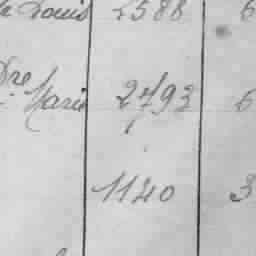 Louis 2588 6
Dre
Marie 2793 6
1140 3